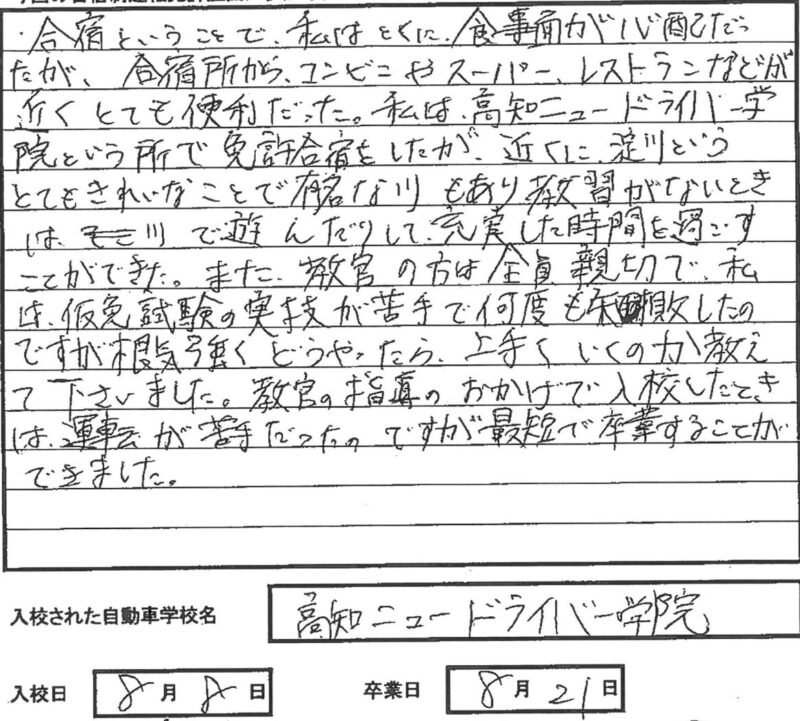 ・合宿ということで、私はとくに、食事面が心配だっ
たが、合宿所から、コンビニやスーパー、レストランなどが
近くとても便利だった。私は、高知ニュードライバー学
院という所で免許合宿をしたが、近くに、淀川という
とてもきれいなことで有名な川もあり教習がないとき
は、川で遊んだりして、充実した時間を過ごす
ことができた。また、教官の方は全員親切で、私
は、仮免試験の実技が苦手で何度も失敗したの
ですが根気強くどうやったら、上手くいくのか教え
て下さいました。教官の指導のおかげで入校したとき
は、運転が苦手だったのですが最短で卒業することが
できました。
入校された自動車学校名 高知ニュードライバー学院
入校日 8月8日 卒業日 8月21日